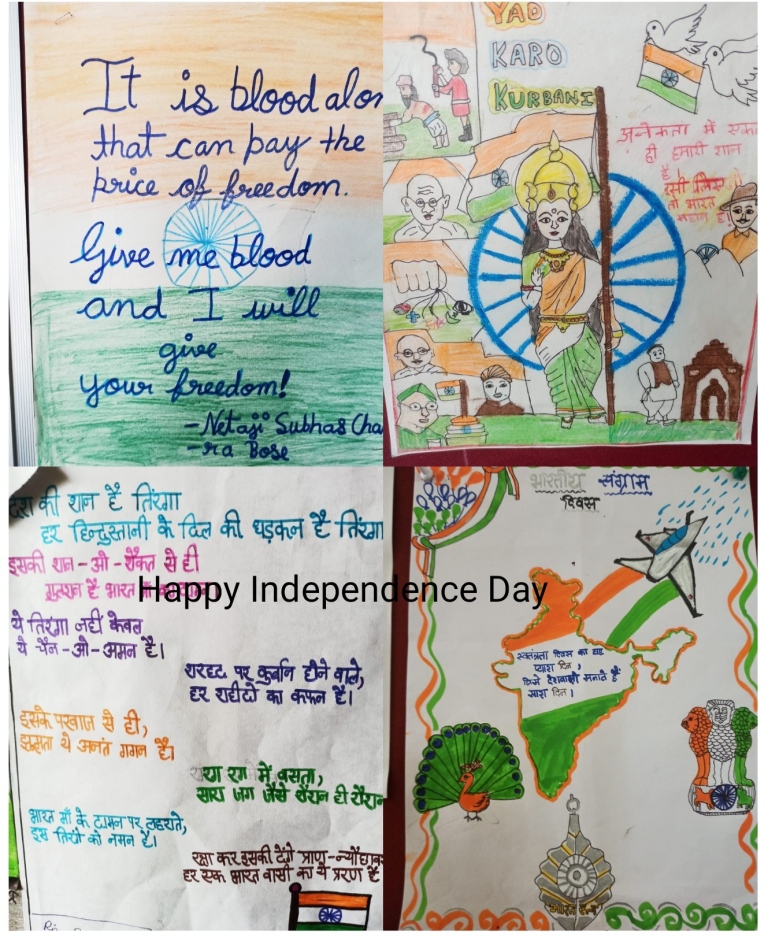 It is blood alon
that can pay the
price of freedom.
Give me blood
and I will
give
your freedom!
- Netaji Subhas Cha
- ra Bose
YAD
KARO
KURBANI
अनेकता में एकता
ही हमारी शान
है
इसी लिए
तो भारत
महान है।
देश की शान है तिरंगा
हर हिन्दुस्तानी के दिल की धड़कन है तिरंगा
इसकी शान-ओ-शौकत से ही
गुलशन है भारत
ये तिरंगा नहीं केवल
ये चैन-ओ-अमन है।
सरहद पर कुर्बान होने वाले,
हर शहीदो का कफन है।
इसके परवाज से ही,
झूमता ये अनंत गगन है।
रग में बसता,
सारा जग जैसे
भारत माँ के दामन पर लहराते,
इस तिरंगे को नमन है।
रक्षा कर इसकी देंगे प्राण-न्यौछावर
हर एक भारत वासी का ये प्ररण है
Happy Independence Day
भारतीय संग्राम
दिवस
स्वतंत्रता दिवस का यह
प्यारा दिन,
जिसे देशवासी मनाते हैं
सारा दिन।